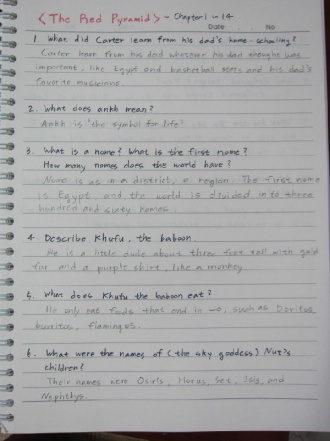 <The Red Pyramid> - Chapter 1 - 14
Date . . No
1. What did Carter learn from his dad's home-schooling?
Carter learn from his dad whatever his dad thought was
important, like Egypt and basketball stats and his dad's
favorite musicians.
2. What does ankh mean?
Ankh is 'the symbol for life'
3. What is a nome? What is the first nome?
How many nomes does the world have?
Nome is as in a district, a region. The first nome
is Egypt, and the world is divided into three
hundred and sixty nomes.
4. Describe Khufu, the baboon.
He is a little dude about three feet tall with gold
fur and a purple shirt, like a monkey
5. What does Khufu the baboon eat?
He only eat foods that end in -o, such as Doritos,
burritos, flamingos.
6. What were the names of (the sky goddess) Nut's
children?
Their names were Osiris, Horus, Set, Isis, and
Nephthys.